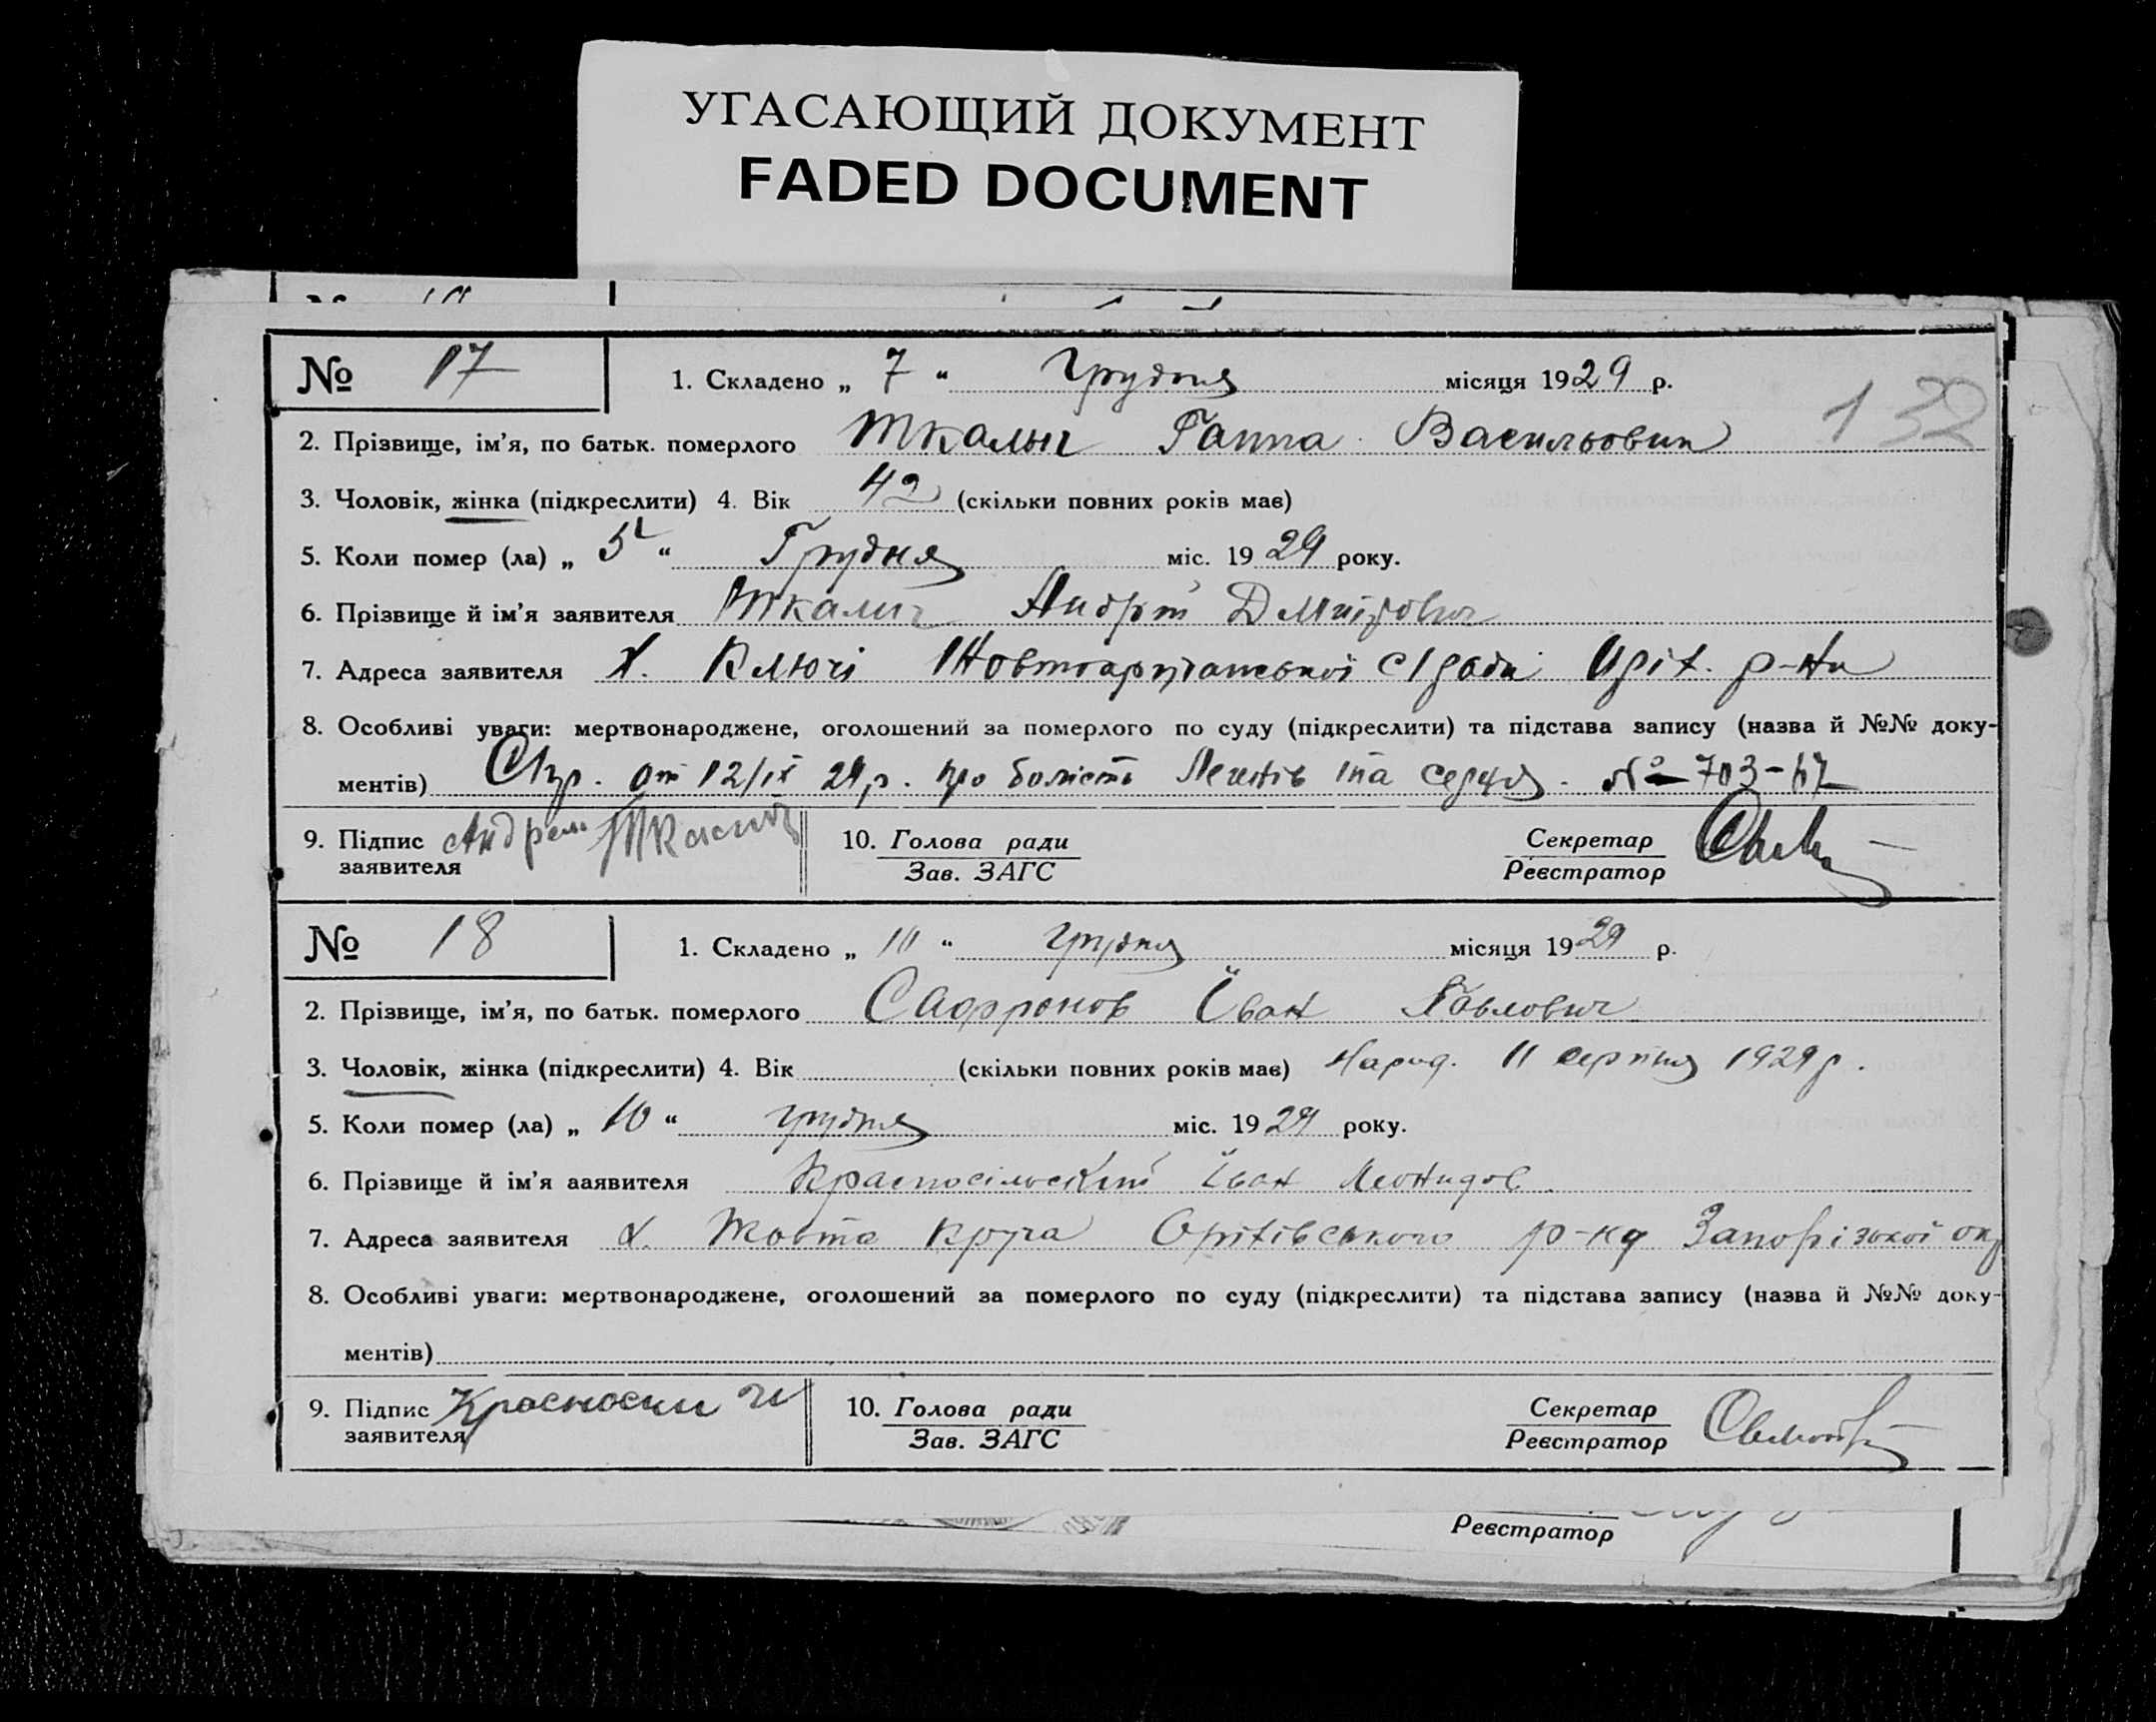 УГАСАЮЩИЙ ДОКУМЕНТ
FADED DOCUMENT
№ 17 1. Складено „ 7 “ Грудня місяця 1929 р.
132
2. Прізвище, ім’я, по батьк. померлого Ткалыч Ганна Васильовна
3. Чоловік, жінка (підкреслити) 4. Вік 42 (скільки повних років має)
5. Коли помер (ла) „ 5 “ Грудня міс. 1929 року.
6. Прізвище й ім’я заявителя Ткалич Андрій Дмитрович
7. Адреса заявителя х. Ключі Жовтокручанської с/ради Оріх. р-на
8. Особливі уваги: мертвонароджене, оголошений за померлого по суду (підкреслити) та підстава запису (назва й №№ доку-
ментів) от 12/ІХ 29 р. про болість Легенів та серця. № 703-
9. Підпис Андрей Ткалич 10. Голова ради Секретар
заявителя Зав. ЗАГС Реєстратор
№ 18 1. Складено „ 10 “ грудня місяця 1929 р.
2. Прізвище, ім’я, по батьк. померлого Сафронов Іван Павлович
3. Чоловік, жінка (підкреслити) 4. Вік (скільки повних років має) Народ. 11 серпня 1929 р.
5. Коли помер (ла) „ 10 “ грудня міс. 1929 року.
6. Прізвище й ім’я заявителя Красносільский Іван Леонидов
7. Адреса заявителя х. Жовта круча Оріхівського р-ну Запорізької окр
8. Особливі уваги: мертвонароджене, оголошений за померлого по суду (підкреслити) та підстава запису (назва й №№ доку-
ментів)
9. Підпис 10. Голова ради Секретар
заявителя Зав. ЗАГС Реєстратор
Реєстратор